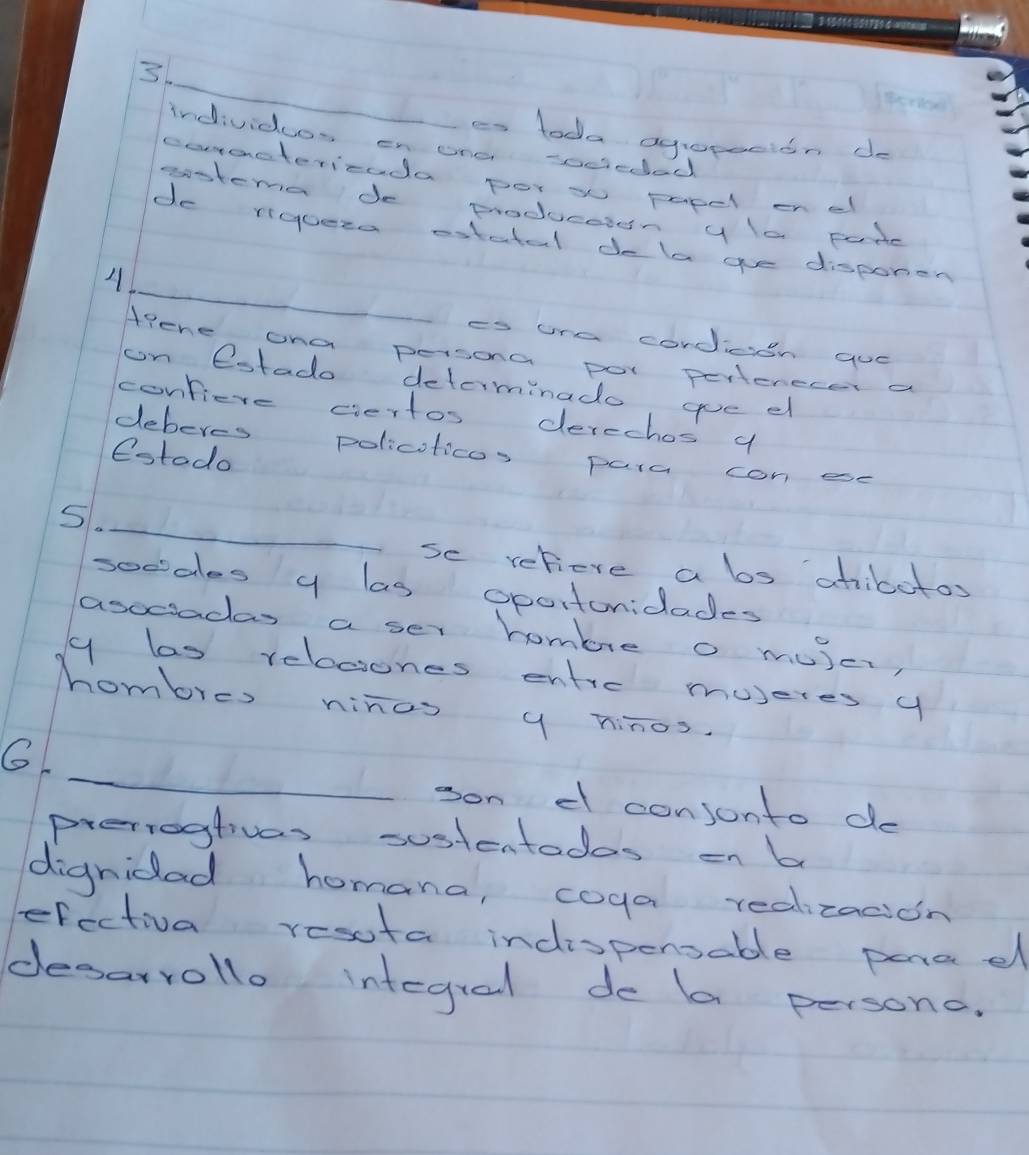 3. ________ es toda agropación de
individuos en una sociedad
caracterizada por su papel en el
sistema de produccion y la parte
de riqueza estatal de la que disponen
4. ________ es una condición que
tiene una persona por pertenecer a
un Estado determinado que el
confiere ciertos derechos y
deberes policiticos para con ese
Estado
5. ________ se refiere a los atributos
sociales y las oportunidades
asociadas a ser hombre o mujer,
y las relaciones entre mujeres y
hombres niñas y niños.
6. ________ son el conjunto de
prerrogtivas sustentadas en la
dignidad homana, coya realización
efectiva resuta indispensable para el
desarrollo integral de la persona.